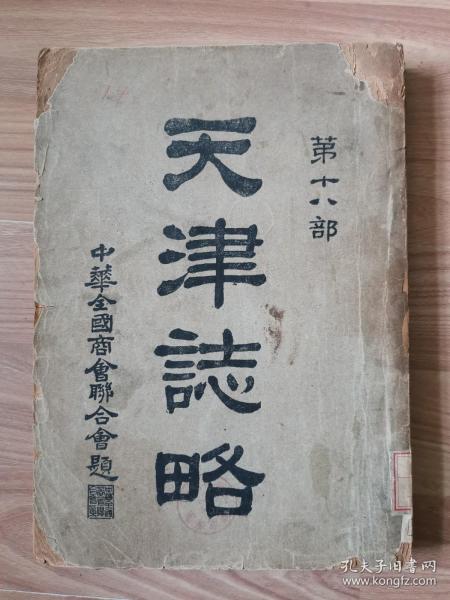 第十八部
天津誌略
中華全國商會聯合會題
孔夫子旧书网
www.kongfz.com